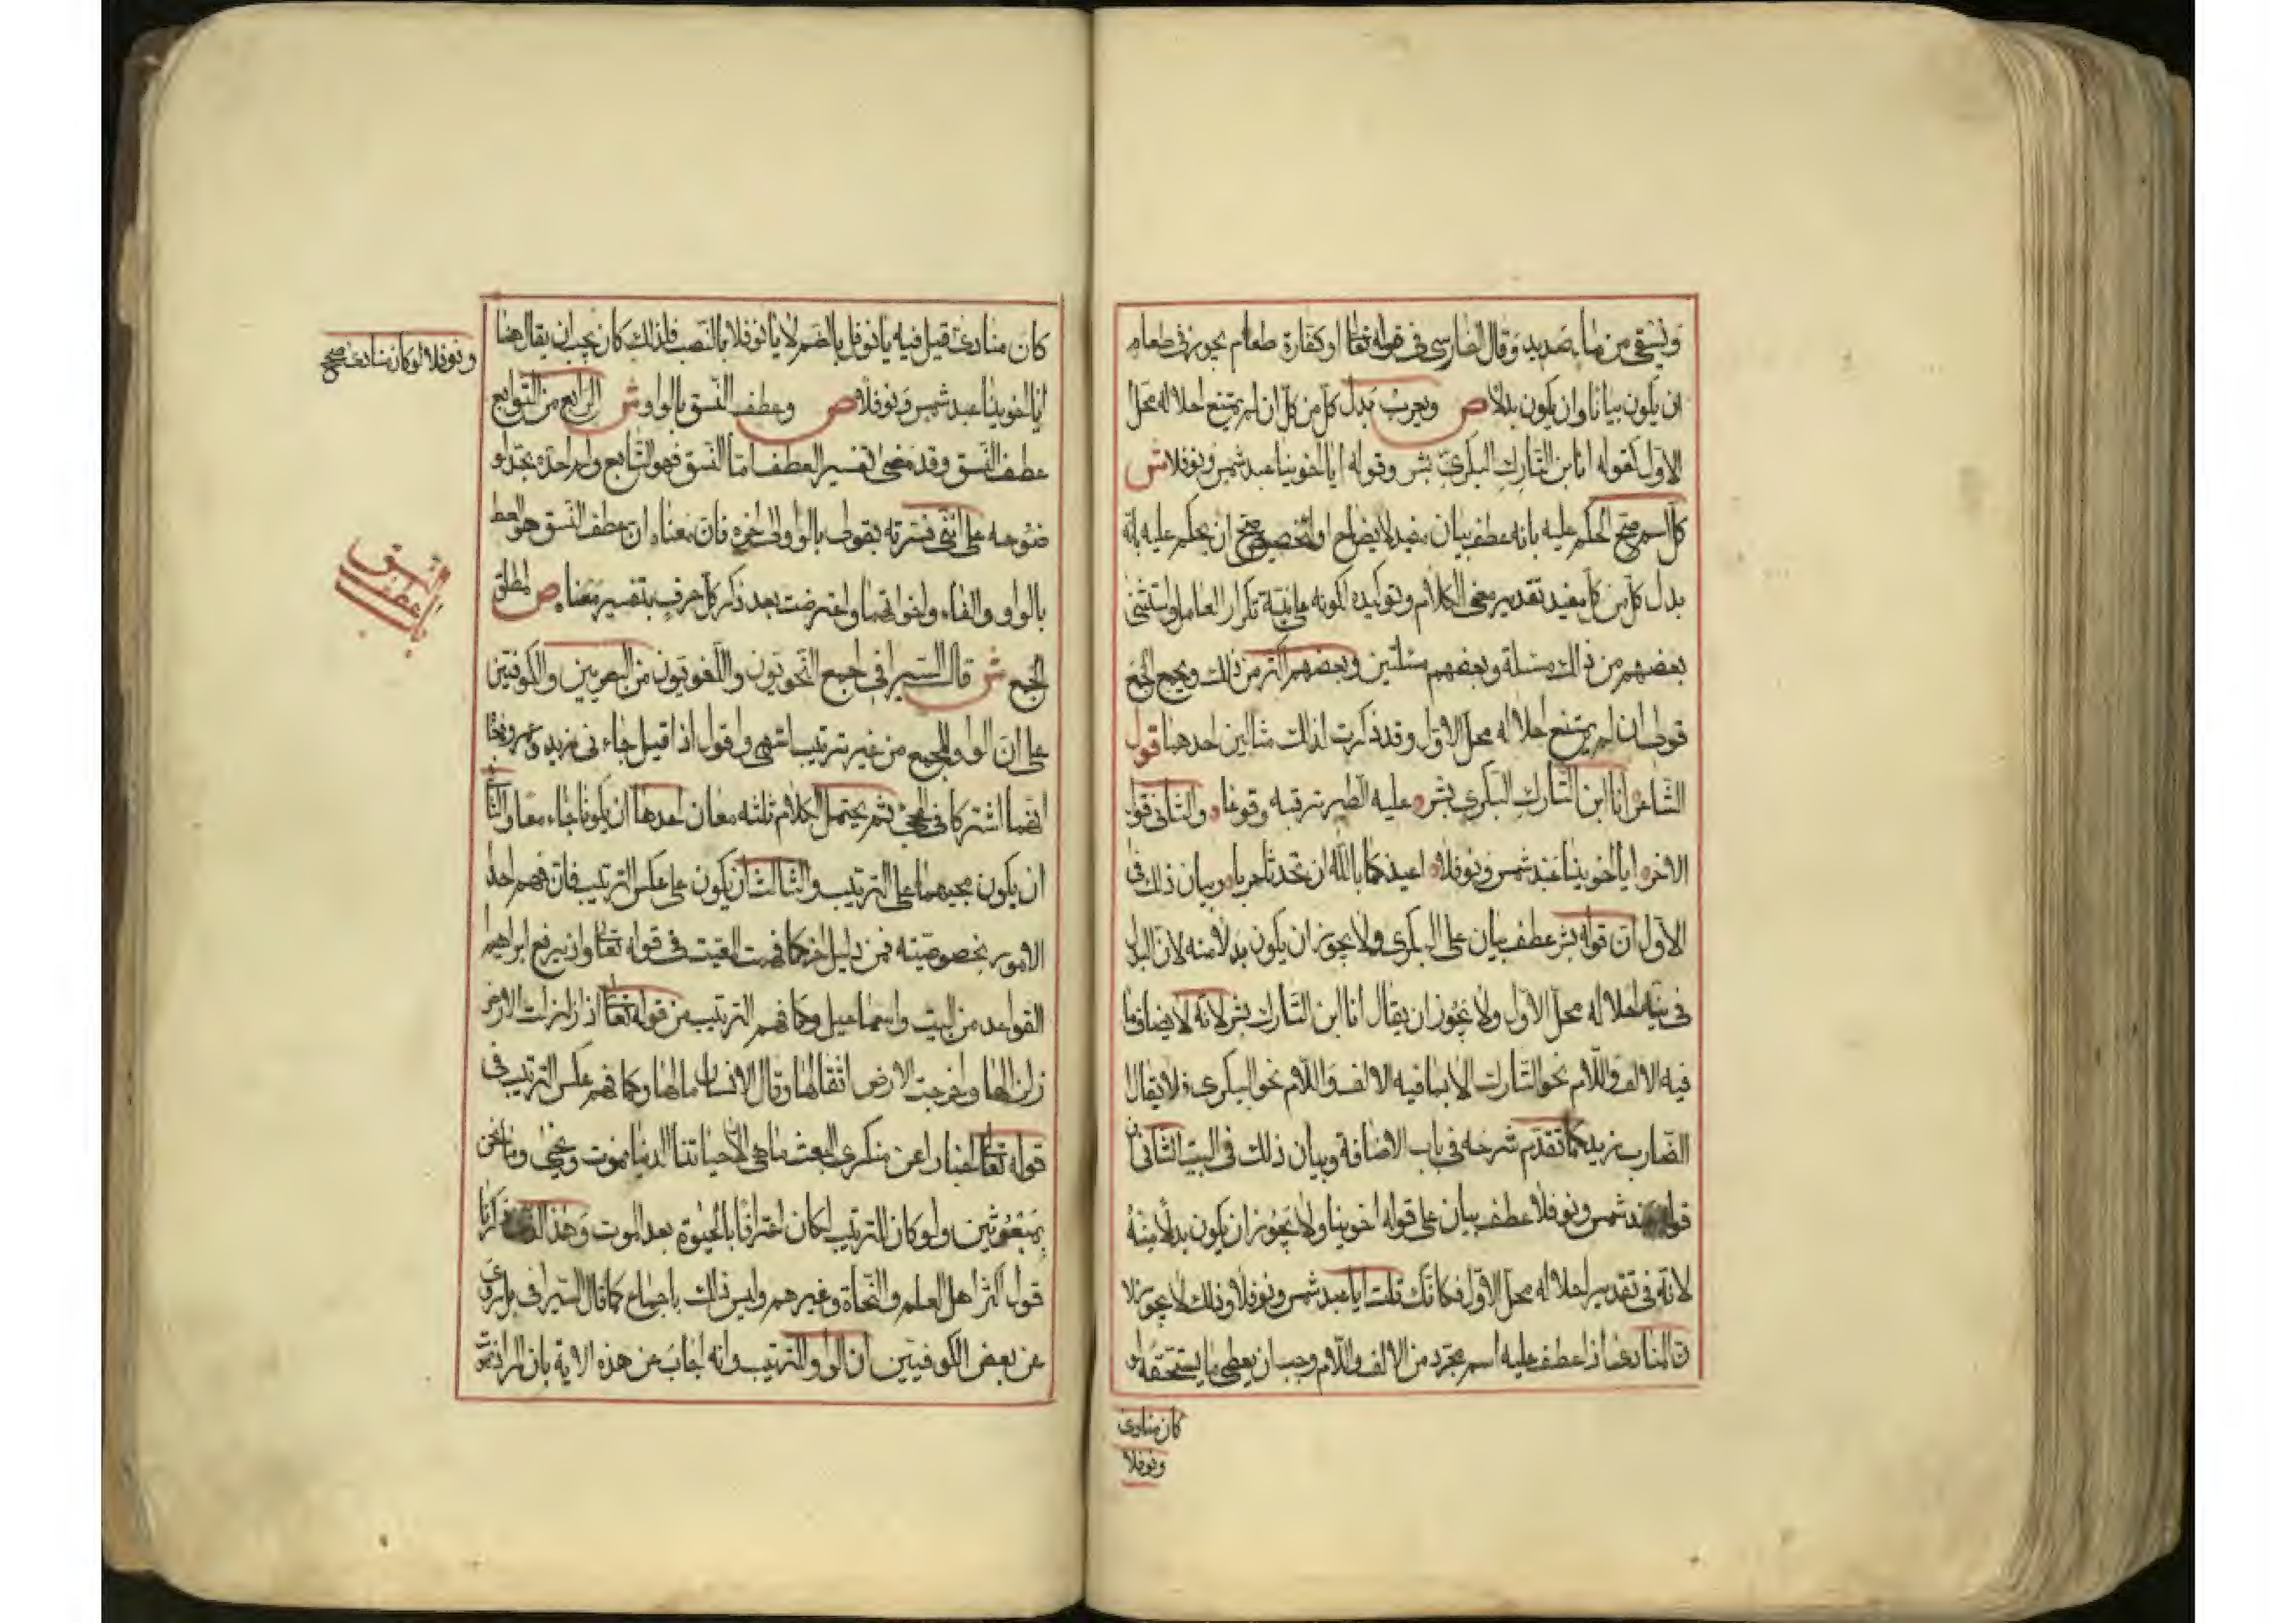 ونسقى من ماء صديد وقال الفارسي في قوله تعا او كفارة طعام يجوز في طعام
ان يكون بيانا وان يكون بدلا ص ويعرب بدل كل من كل ان لم يمتنع احلاله محل
الاول كقوله انا ابن التارك البكري بشر وقوله ايا اخوينا عبد شمس ونوفلا ش
كل اسم صح الحكم عليه بانه عطف بيان مفيد لايضاح او لتخصيص صح ان يحكم عليه بانه
بدل كل من كل مفيد تقدير معنى الكلام وتوكيده لكونه على نية تكرار العامل واستثنى
بعضهم من ذلك مسئلة وبعضهم مسئلتين وبعضهم اكثر من ذلك ويجمع الجميع
قولي ان لم يمتنع احلاله محل الاول وقد ذكرت لذلك مثالين احدهما قول
الشاعر انا ابن التارك البكري بشر عليه الطير ترقبه وقوعا والثاني قول
الاخر ايا اخوينا عبد شمس ونوفلا اعيذكما بالله ان تحدثا حربا وبيان ذلك في
الاول ان قوله بشر عطف بيان على البكري ولا يجوز ان يكون بدلا منه لان البدل
في نية احلاله محل الاول ولا يجوز ان يقال انا ابن التارك بشر لانه لا يضاف ما
فيه الالف واللام نحو التارك الا لما فيه الالف واللام نحو البكري فلا يقال
الضارب زيد كما تقدم شرحه في باب الاضافة وبيان ذلك في البيت الثاني ان
قوله عبد شمس ونوفلا عطف بيان على قوله اخوينا ولا يجوز ان يكون بدلا منه
لانه في تقدير احلاله محل الاول فكانك قلت ايا عبد شمس ونوفلا وذلك لا يجوز لا
ن المنادى اذا عطف عليه اسم مجرد من الالف واللام وجب ان يعطى ما يستحقه لو
كان منادى
ونوفلا
كان منادى قيل فيه يا نوفل بالضم لا يا نوفلا بالنصب فلذلك كان يجب ان يقال هنا
ونوفلا لو كان منادى صح
ايا اخوينا عبد شمس ونوفلا ص وعطف النسق بالواو ش الرابع من التوابع
عطف النسق وقد مضى تفسير العطف اما النسق فهو التابع ولم احده بحد لو
ضوحه على انني فسرته بقولي بالواو الى اخره فان معناه ان عطف النسق هو العطف
بالواو والفاء واخواتهما واعترضت بعد ذكر كل حرف بتفسير معناه ص لمطلق
النسق
عطف
الجمع ش قال السيرافي اجمع النحويون واللغويون من البصريين والكوفيين
على ان الواو للجمع من غير ترتيب انتهى واقول اذا قيل جاءني زيد وعمرو فمعناه
انهما اشتركا في المجئ ثم يحتمل الكلام ثلثة معان احدها ان يكونا جاءا معا والثاني
ان يكون مجيهما على الترتيب والثالث ان يكون على عكس الترتيب فان فهم احد
الامور بخصوصيته فمن دليل اخر كما فهمت المعية في قوله تعا واذ يرفع ابراهيم
القواعد من البيت واسماعيل وكما فهم الترتيب من قوله تعا اذا زلزلت الارض
زلزالها واخرجت الارض اثقالها وقال الانسان مالها وكما فهم عكس الترتيب في
قوله تعا اخبارا عن منكري البعث ما هي الا حياتنا الدنيا نموت ونحيى وما نحن
بمبعوثين ولو كان الترتيب لكان اعترافا بالحيوة بعد الموت وهذا الذي ذكرنا
قول اكثر اهل العلم والنحاة وغيرهم وليس ذلك باجماع كما قال السيرافي بل روي
عن بعض الكوفيين ان الواو للترتيب وانه اجاب عن هذه الاية بان المراد نموت